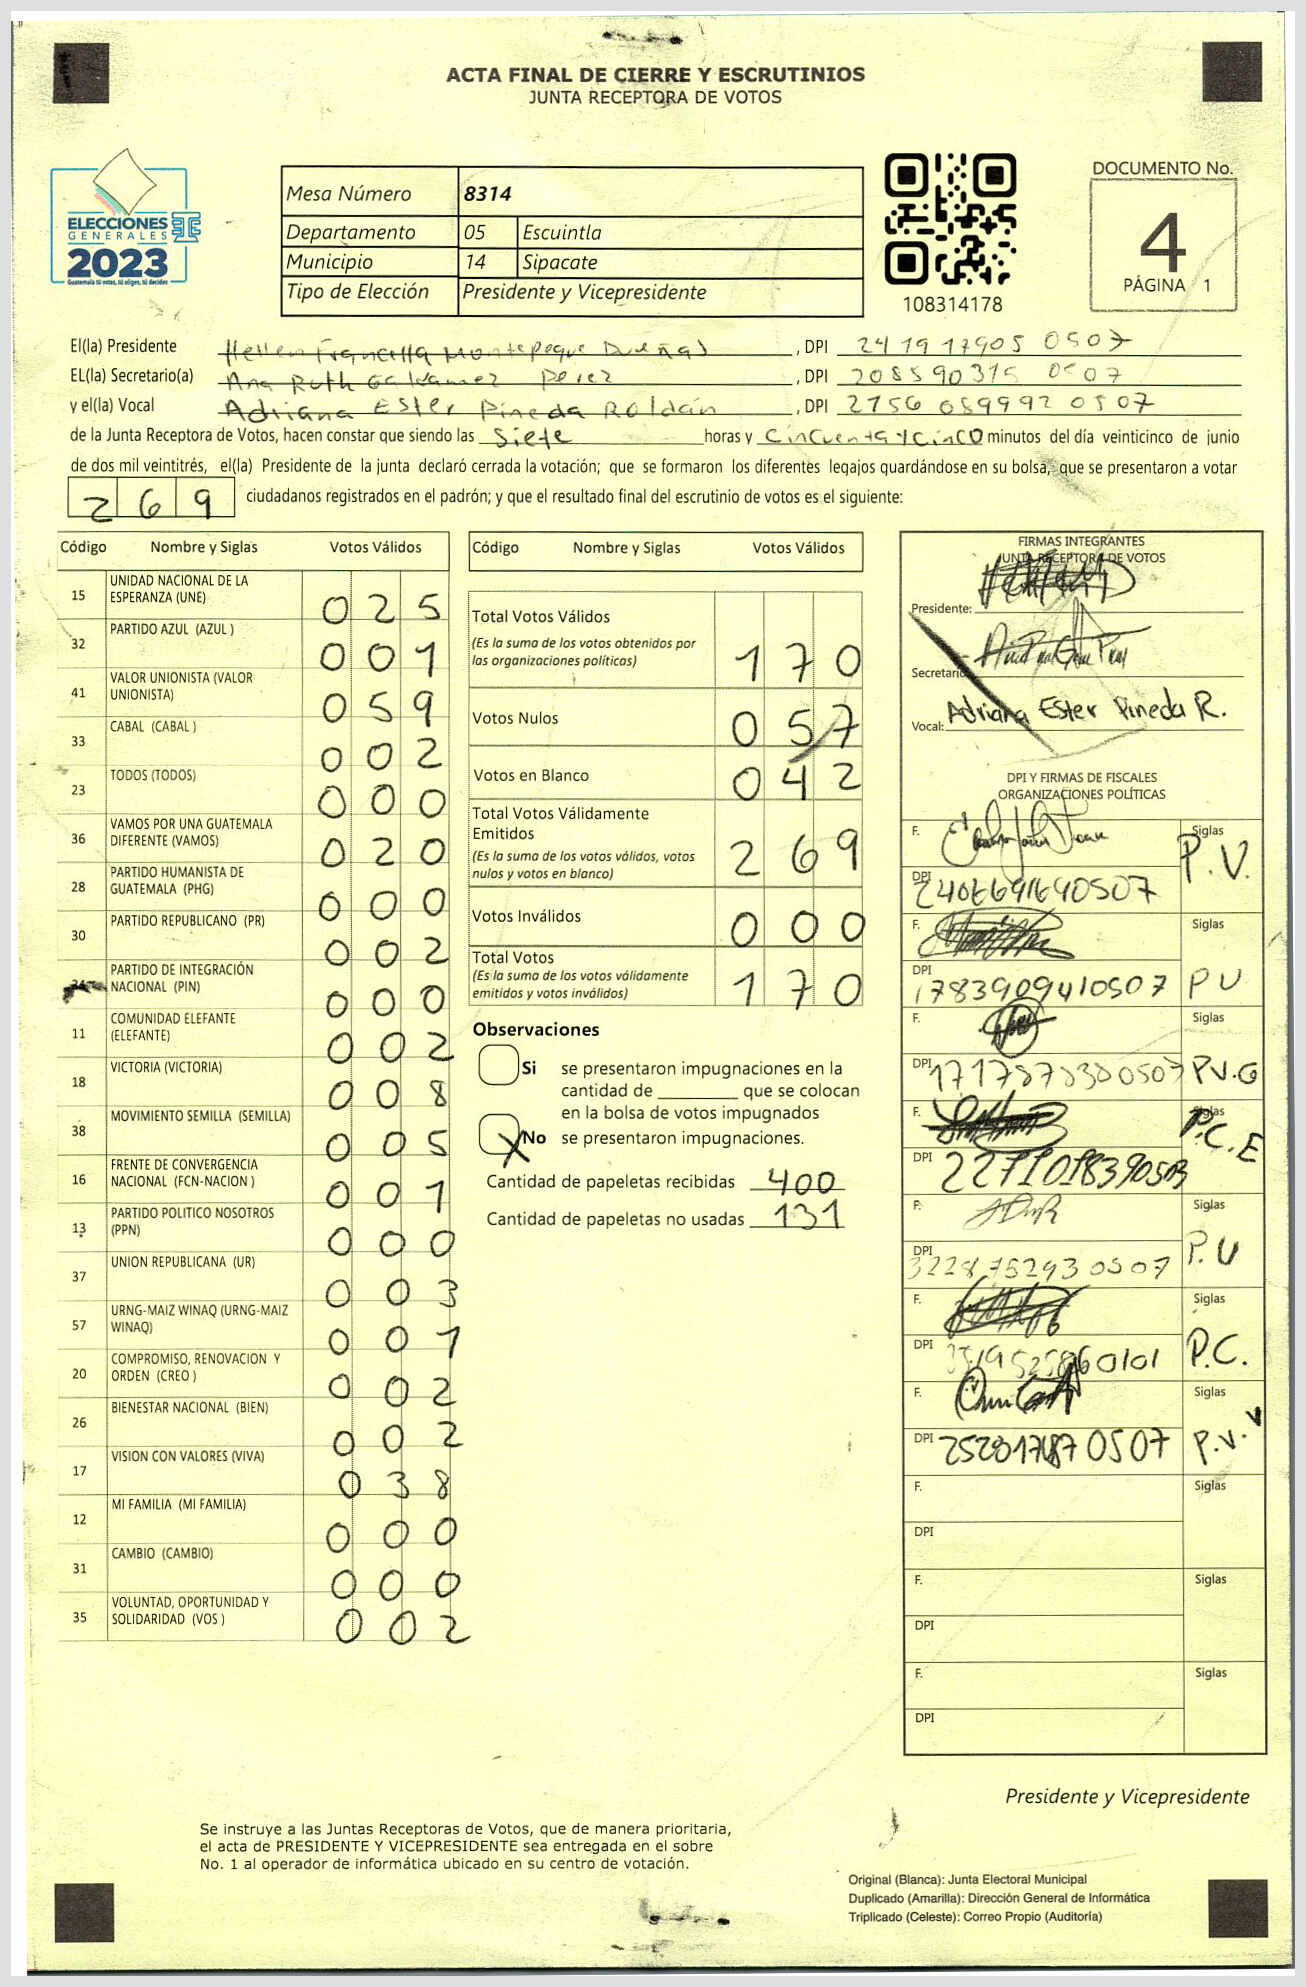 ACTA FINAL DE CIERRE Y ESCRUTINIOS
JUNTA RECEPTORA DE VOTOS
ELECCIONES
GENERALES
2023
Guatemala tú votas, tú eliges, tú decides
Mesa Número 8314
Departamento 05 Escuintla
Municipio 14 Sipacate
Tipo de Elección Presidente y Vicepresidente
108314178
DOCUMENTO No.
4
PÁGINA 1
El(la) Presidente Hellen Francella Montepeque Dueñas , DPI 241917905 0507
EL(la) Secretario(a) Ana Ruth Galvamez Perez , DPI 208590315 0507
y el(la) Vocal Adriana Ester Pineda Roldán , DPI 2756 059992 0507
de la Junta Receptora de Votos, hacen constar que siendo las Siete horas y Cincuenta y Cinco minutos del día veinticinco de junio
de dos mil veintitrés, el(la) Presidente de la junta declaró cerrada la votación; que se formaron los diferentes legajos guardándose en su bolsa, que se presentaron a votar
269 ciudadanos registrados en el padrón; y que el resultado final del escrutinio de votos es el siguiente:
Código Nombre y Siglas Votos Válidos
15 UNIDAD NACIONAL DE LA ESPERANZA (UNE) 025
32 PARTIDO AZUL (AZUL ) 001
41 VALOR UNIONISTA (VALOR UNIONISTA) 059
33 CABAL (CABAL ) 002
23 TODOS (TODOS) 000
36 VAMOS POR UNA GUATEMALA DIFERENTE (VAMOS) 020
28 PARTIDO HUMANISTA DE GUATEMALA (PHG) 000
30 PARTIDO REPUBLICANO (PR) 002
PARTIDO DE INTEGRACIÓN NACIONAL (PIN) 000
11 COMUNIDAD ELEFANTE (ELEFANTE) 002
18 VICTORIA (VICTORIA) 008
38 MOVIMIENTO SEMILLA (SEMILLA) 005
16 FRENTE DE CONVERGENCIA NACIONAL (FCN-NACION ) 001
13 PARTIDO POLITICO NOSOTROS (PPN) 000
37 UNION REPUBLICANA (UR) 003
57 URNG-MAIZ WINAQ (URNG-MAIZ WINAQ) 001
20 COMPROMISO, RENOVACION Y ORDEN (CREO ) 002
26 BIENESTAR NACIONAL (BIEN) 002
17 VISION CON VALORES (VIVA) 038
12 MI FAMILIA (MI FAMILIA) 000
31 CAMBIO (CAMBIO) 000
35 VOLUNTAD, OPORTUNIDAD Y SOLIDARIDAD (VOS ) 002
Código Nombre y Siglas Votos Válidos
Total Votos Válidos
(Es la suma de los votos obtenidos por las organizaciones políticas) 170
Votos Nulos 057
Votos en Blanco 042
Total Votos Válidamente Emitidos
(Es la suma de los votos válidos, votos nulos y votos en blanco) 269
Votos Inválidos 000
Total Votos
(Es la suma de los votos válidamente emitidos y votos inválidos) 170
Observaciones
Si se presentaron impugnaciones en la
cantidad de ________ que se colocan
en la bolsa de votos impugnados
X No se presentaron impugnaciones.
Cantidad de papeletas recibidas 400
Cantidad de papeletas no usadas 131
FIRMAS INTEGRANTES
JUNTA RECEPTORA DE VOTOS
Presidente:
Secretario
Vocal: Adriana Ester Pineda R.
DPI Y FIRMAS DE FISCALES
ORGANIZACIONES POLÍTICAS
F. Siglas P.V.
DPI 2406691690507
F. Siglas P U
DPI 1783909410507
F. Siglas P.V.G
DPI
F. Siglas P.C.E
DPI
F. Siglas P.U
DPI 3228752930507
F. Siglas P.C.
DPI
F. Siglas P.V.V
DPI
F. Siglas
DPI
F. Siglas
DPI
F. Siglas
DPI
Presidente y Vicepresidente
Se instruye a las Juntas Receptoras de Votos, que de manera prioritaria,
el acta de PRESIDENTE Y VICEPRESIDENTE sea entregada en el sobre
No. 1 al operador de informática ubicado en su centro de votación.
Original (Blanca): Junta Electoral Municipal
Duplicado (Amarilla): Dirección General de Informática
Triplicado (Celeste): Correo Propio (Auditoría)